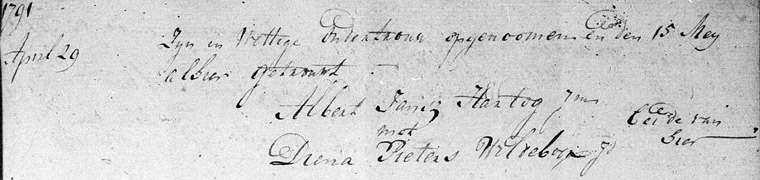 1791
April 29 Zyn in Wettige Ondertrouw opgenoomen En den 15 Mey
alhier getrouwt
Albert Jansz Hartog Jm
met
Diena Pieters
beide van
hier